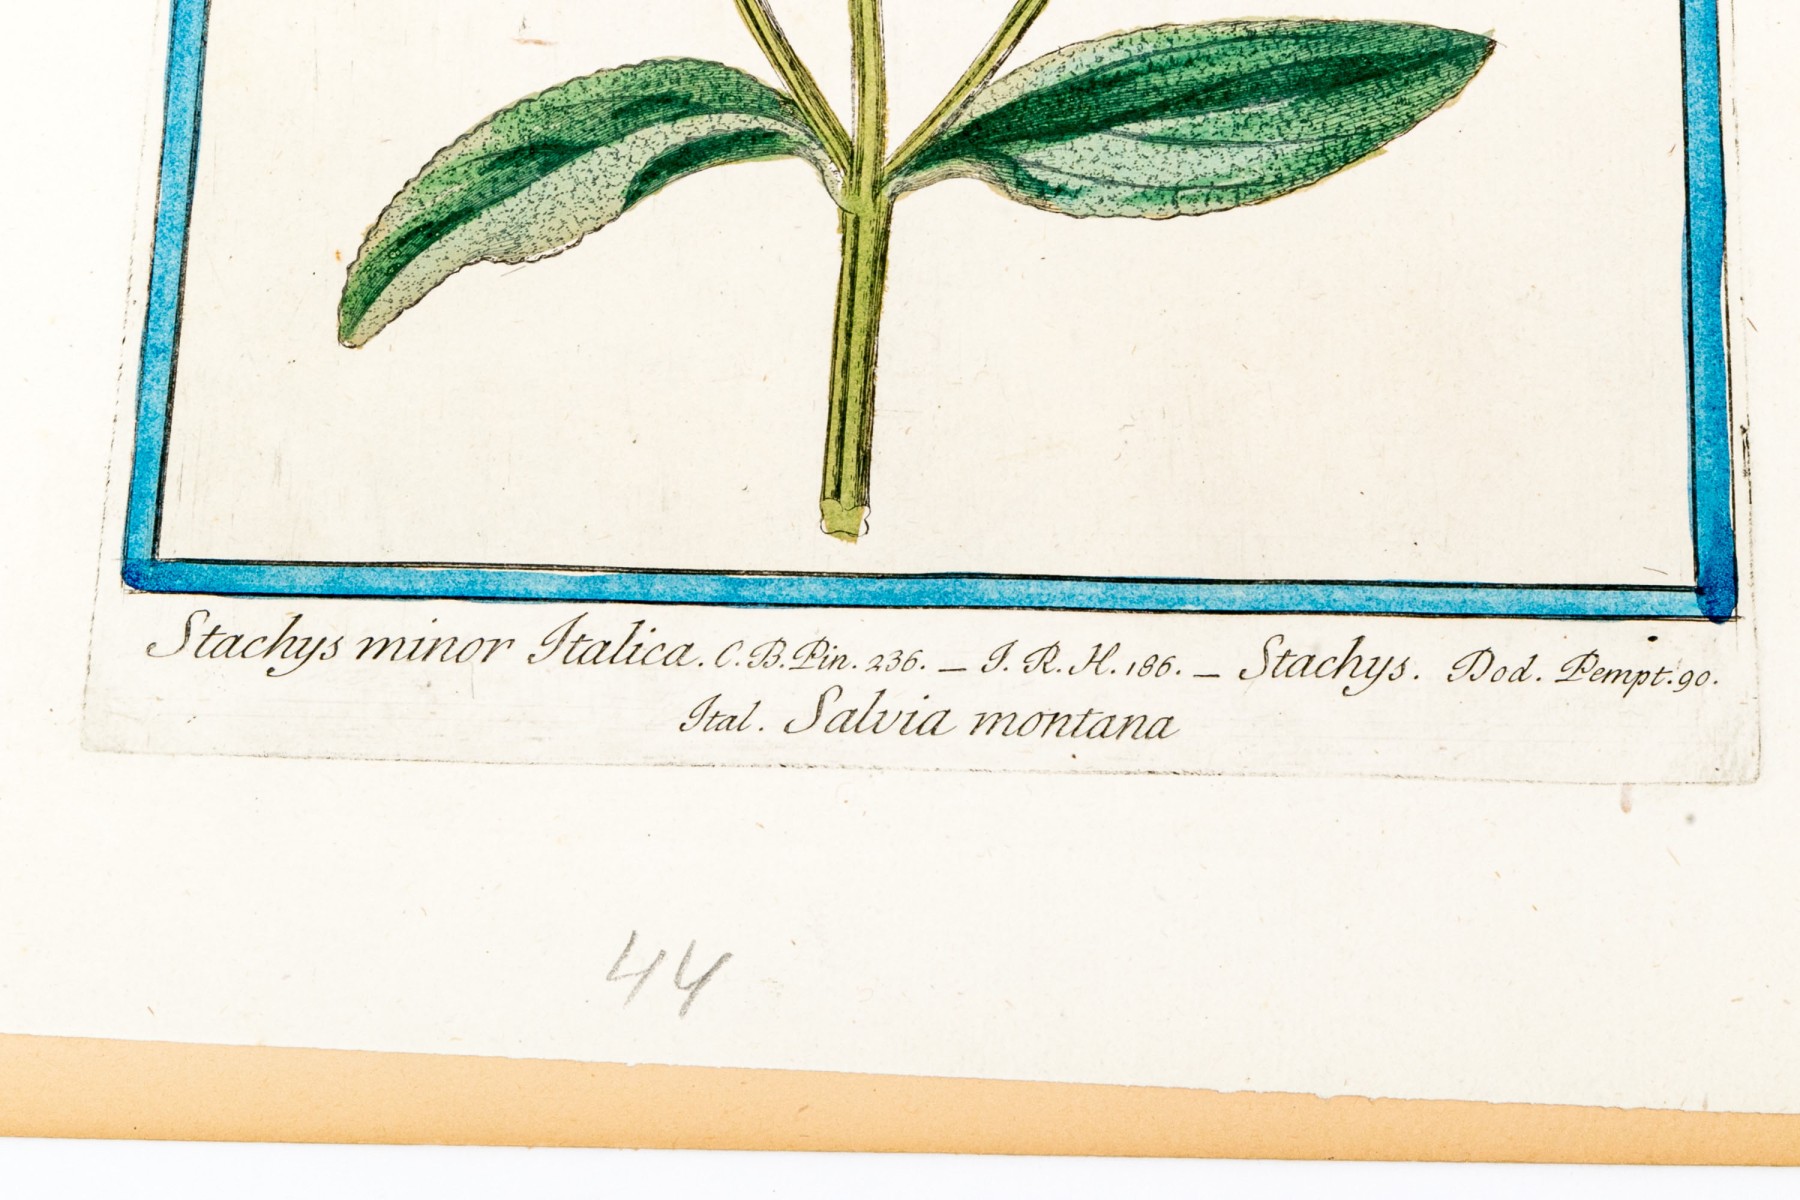 Stachys minor Italica. C. B. Pin. 236. _ I. R. H. 186. _ Stachys. Dod. Pempt. 90.
Ital. Salvia montana
44